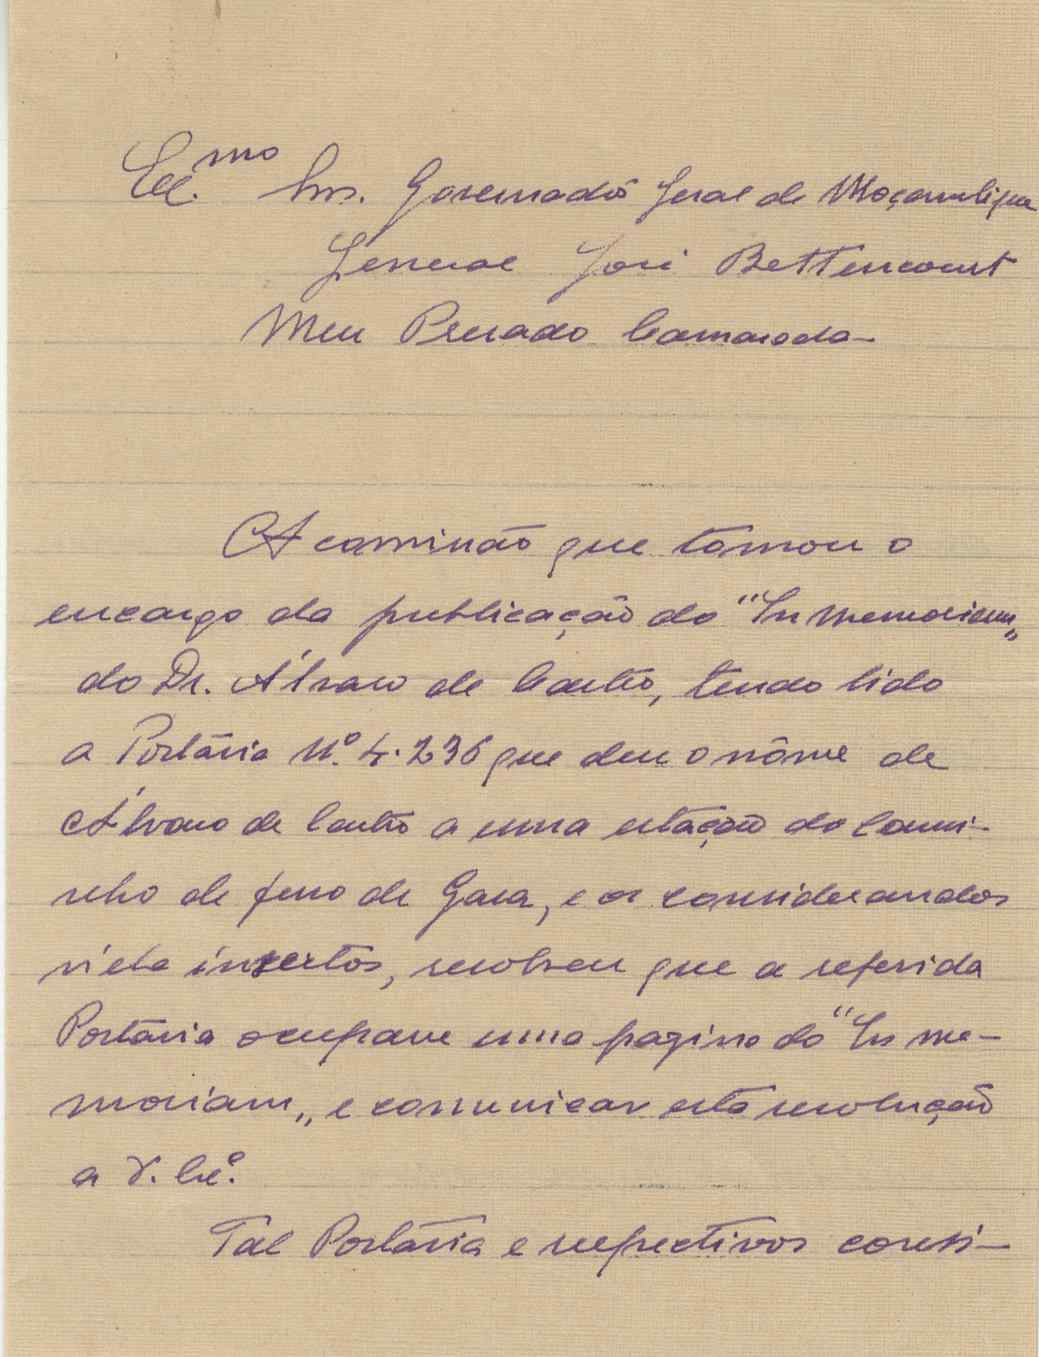 Ex.mo Snr. Governadôr Geral de Moçambique
General José Bettencourt
Meu Presado Camarada
A comissão que tomou o
encargo da publicação do "In Memoriam„
do Dr. Álvaro de Castro, tendo lido
a Portária N.º 4.236 que deu o nôme de
Álvaro de Castro a uma estação do Cami-
nho de ferro de Gaza, e os considerandos
nela insertos, resolveu que a referida
Portária ocupasse uma pagina do "In me-
moriam„ e comunicar esta resolução
a V. Ex.ª
Tal Portária e respectivos consi-